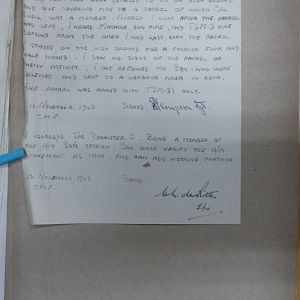 AND GIVE COVERING FIRE TO A PATROL OF WHICH CPL
SNELL WAS A MEMBER. APPROX 1 HOUR AFTER THE PATROL
HAD LEFT, I HEARD MACHINE GUN FIRE, AND T.S.M.G FIRE
COMING FROM THE AREA I HAD LAST SEEN THE PATROL
I STAYED ON THE HIGH GROUND FOR A FURTHER FOUR AND
HALF HOURS. I SAW NO SIGNS OF THE PATROL OR
ENEMY ACTIVITY. I THE REJOINED MY BDN WHO WERE
RELIEVED AND SENT TO A HARBOUR AREA IN REAR.
THE PATROL WAS ARMED WITH T.S.M.G'S ONLY.
12 NOVEMBER 1943 SIGNED. Sgt
C.M.F.
I TPR DERUITTER. C. BEING A MEMBER OF
THE A/M SGTS SECTION. CAN ONLY VERIFY THE A/M
STATEMENT AS TRUE AND CAN ADD NOTHING FURTHER
12 NOVEMBER 1943. SIGNED.
C.M.F.